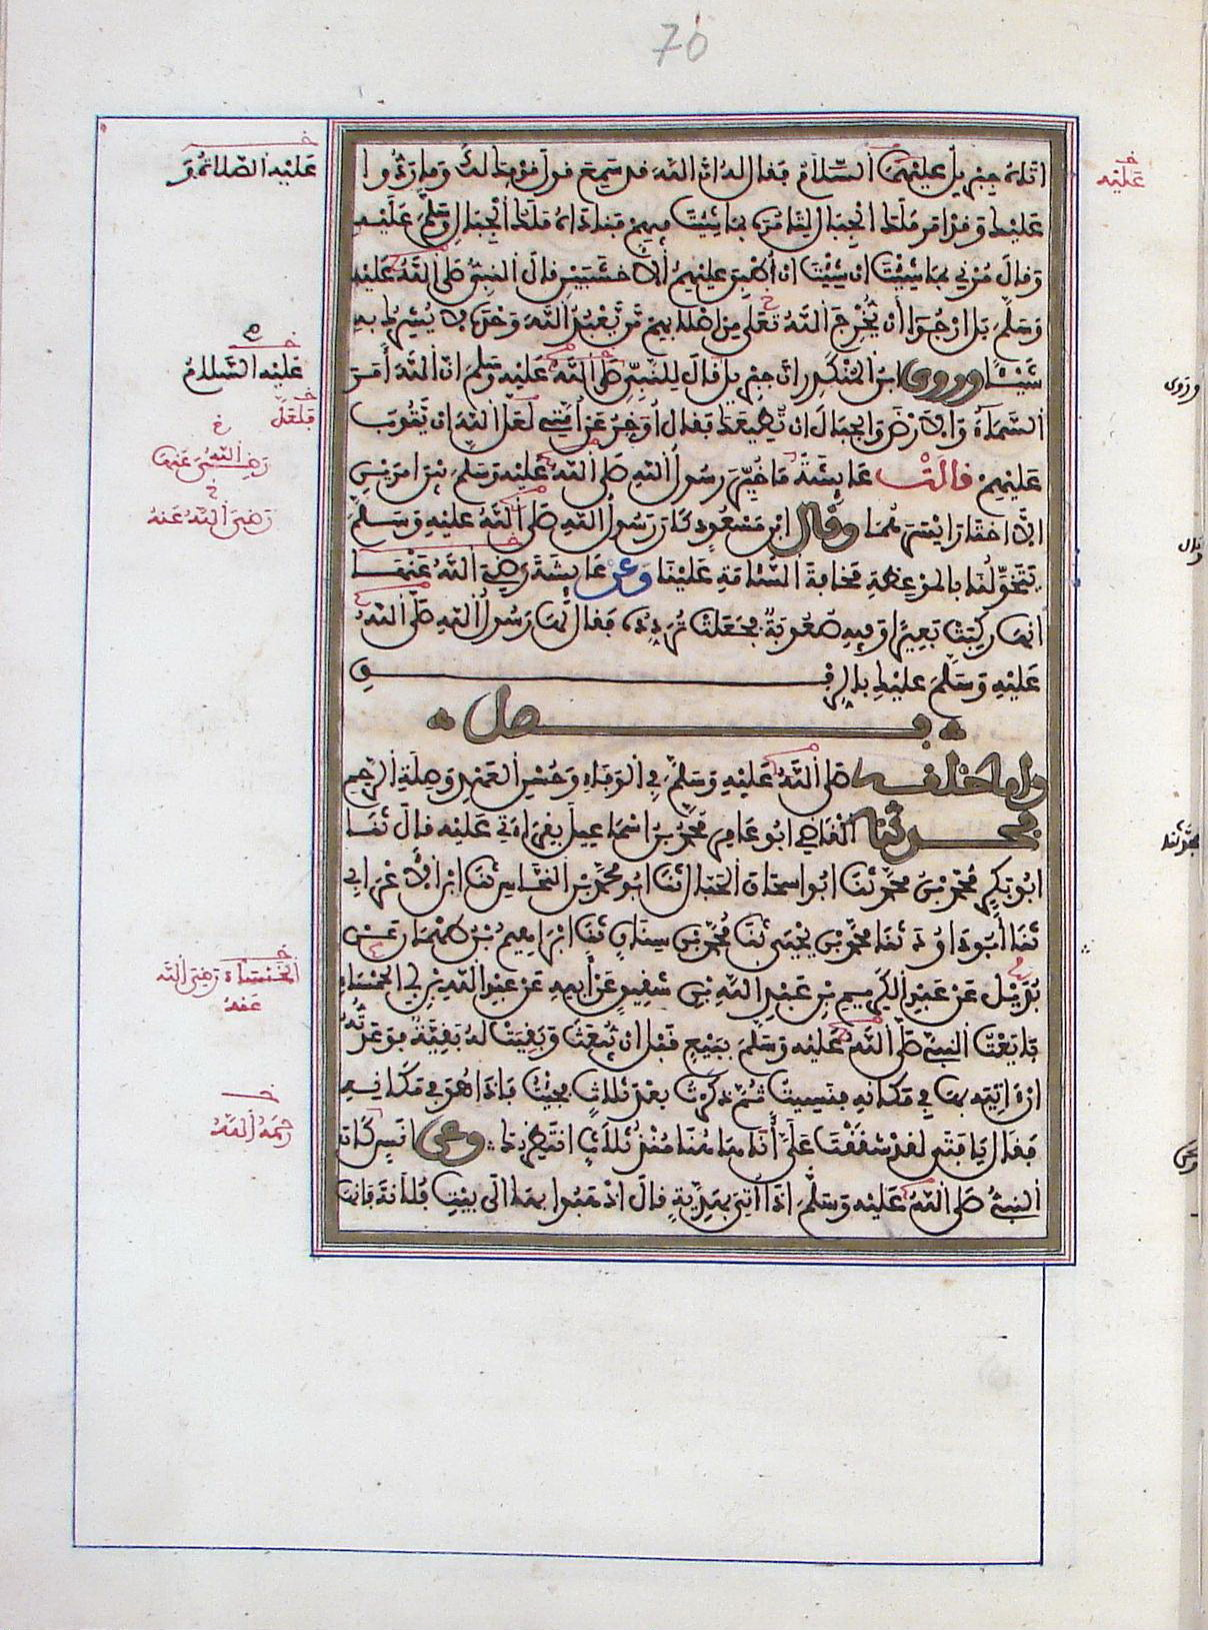 76
اتاه جبريل عليهما السلام فقال له ان الله قد سمع قول قومك لك وما ردوا
عليك وقد امر ملك الجبال لتامره بما شئت فيهم فناداه ملك الجبال وسلم عليه
وقال مرني بما شئت ان شئت ان اطبق عليهم الاخشبين قال النبي صلى الله عليه
وسلم بل ارجوا أن يخرج الله تعلى من اصلابهم من يعبد الله وحده لا يشرك به
شيئا وروى ابن المنكدر ان جبريل قال للنبي صلى الله عليه وسلم ان الله أمر
السماء والارض والجبال ان تطيعك فقال أوخر عن أمتي لعل الله ان يتوب
عليهم قالت عايشة ما خير رسول الله صلى الله عليه وسلم بين امرين
الا اختار ايسرهما وقال ابن مسعود كان رسول الله صلى الله عليه وسلم
يتخولنا بالموعظة مخافة السئامة علينا وعن عايشة رضي الله عنها
انها ركبت بعيرا وفيه صعوبة فجعلت تردده فقال لها رسول الله صلى الله
عليه وسلم عليك بالرفق
فصل
واما خلقه صلى الله عليه وسلم في الوفاء وحسن العهد وصلة الرحم
فحدثنا القاضي ابو عامر محمد بن اسماعيل بقراءتي عليه قال ثنا
ابو بكر محمد بن محمد ثنا ابو اسحاق الحبال ثنا ابو محمد بن النحاس ثنا ابن الاعرابي
ثنا أبو داود ثنا محمد بن يحيى ثنا محمد بن سنان ثنا ابراهيم بن طهمان عن
بديل عن عبد الكريم بن عبد الله بن شقيق عن أبيه عن عبد الله بن ابي الحمساء
بايعت النبي صلى الله عليه وسلم ببيع قبل ان يبعث وبقيت له بقية فوعدته
ان اتيه بها في مكانه فنسيت ثم ذكرت بعد ثلاث فجئت فاذا هو في مكانه
فقال يا فتى لقد شققت علي أنا ها هنا منذ ثلاث انتظرك وعن انس كان
النبي صلى الله عليه وسلم اذا أتي بهدية قال اذهبوا بها الى بيت فلانة فانها
عليه
عليه الصلاة و
عليه السلام
فلعل
رضي الله عنها
رضي الله عنه
الخنساء رضي الله
عنه
رحمه الله
وروى
وقال
فحدثنا
وعن